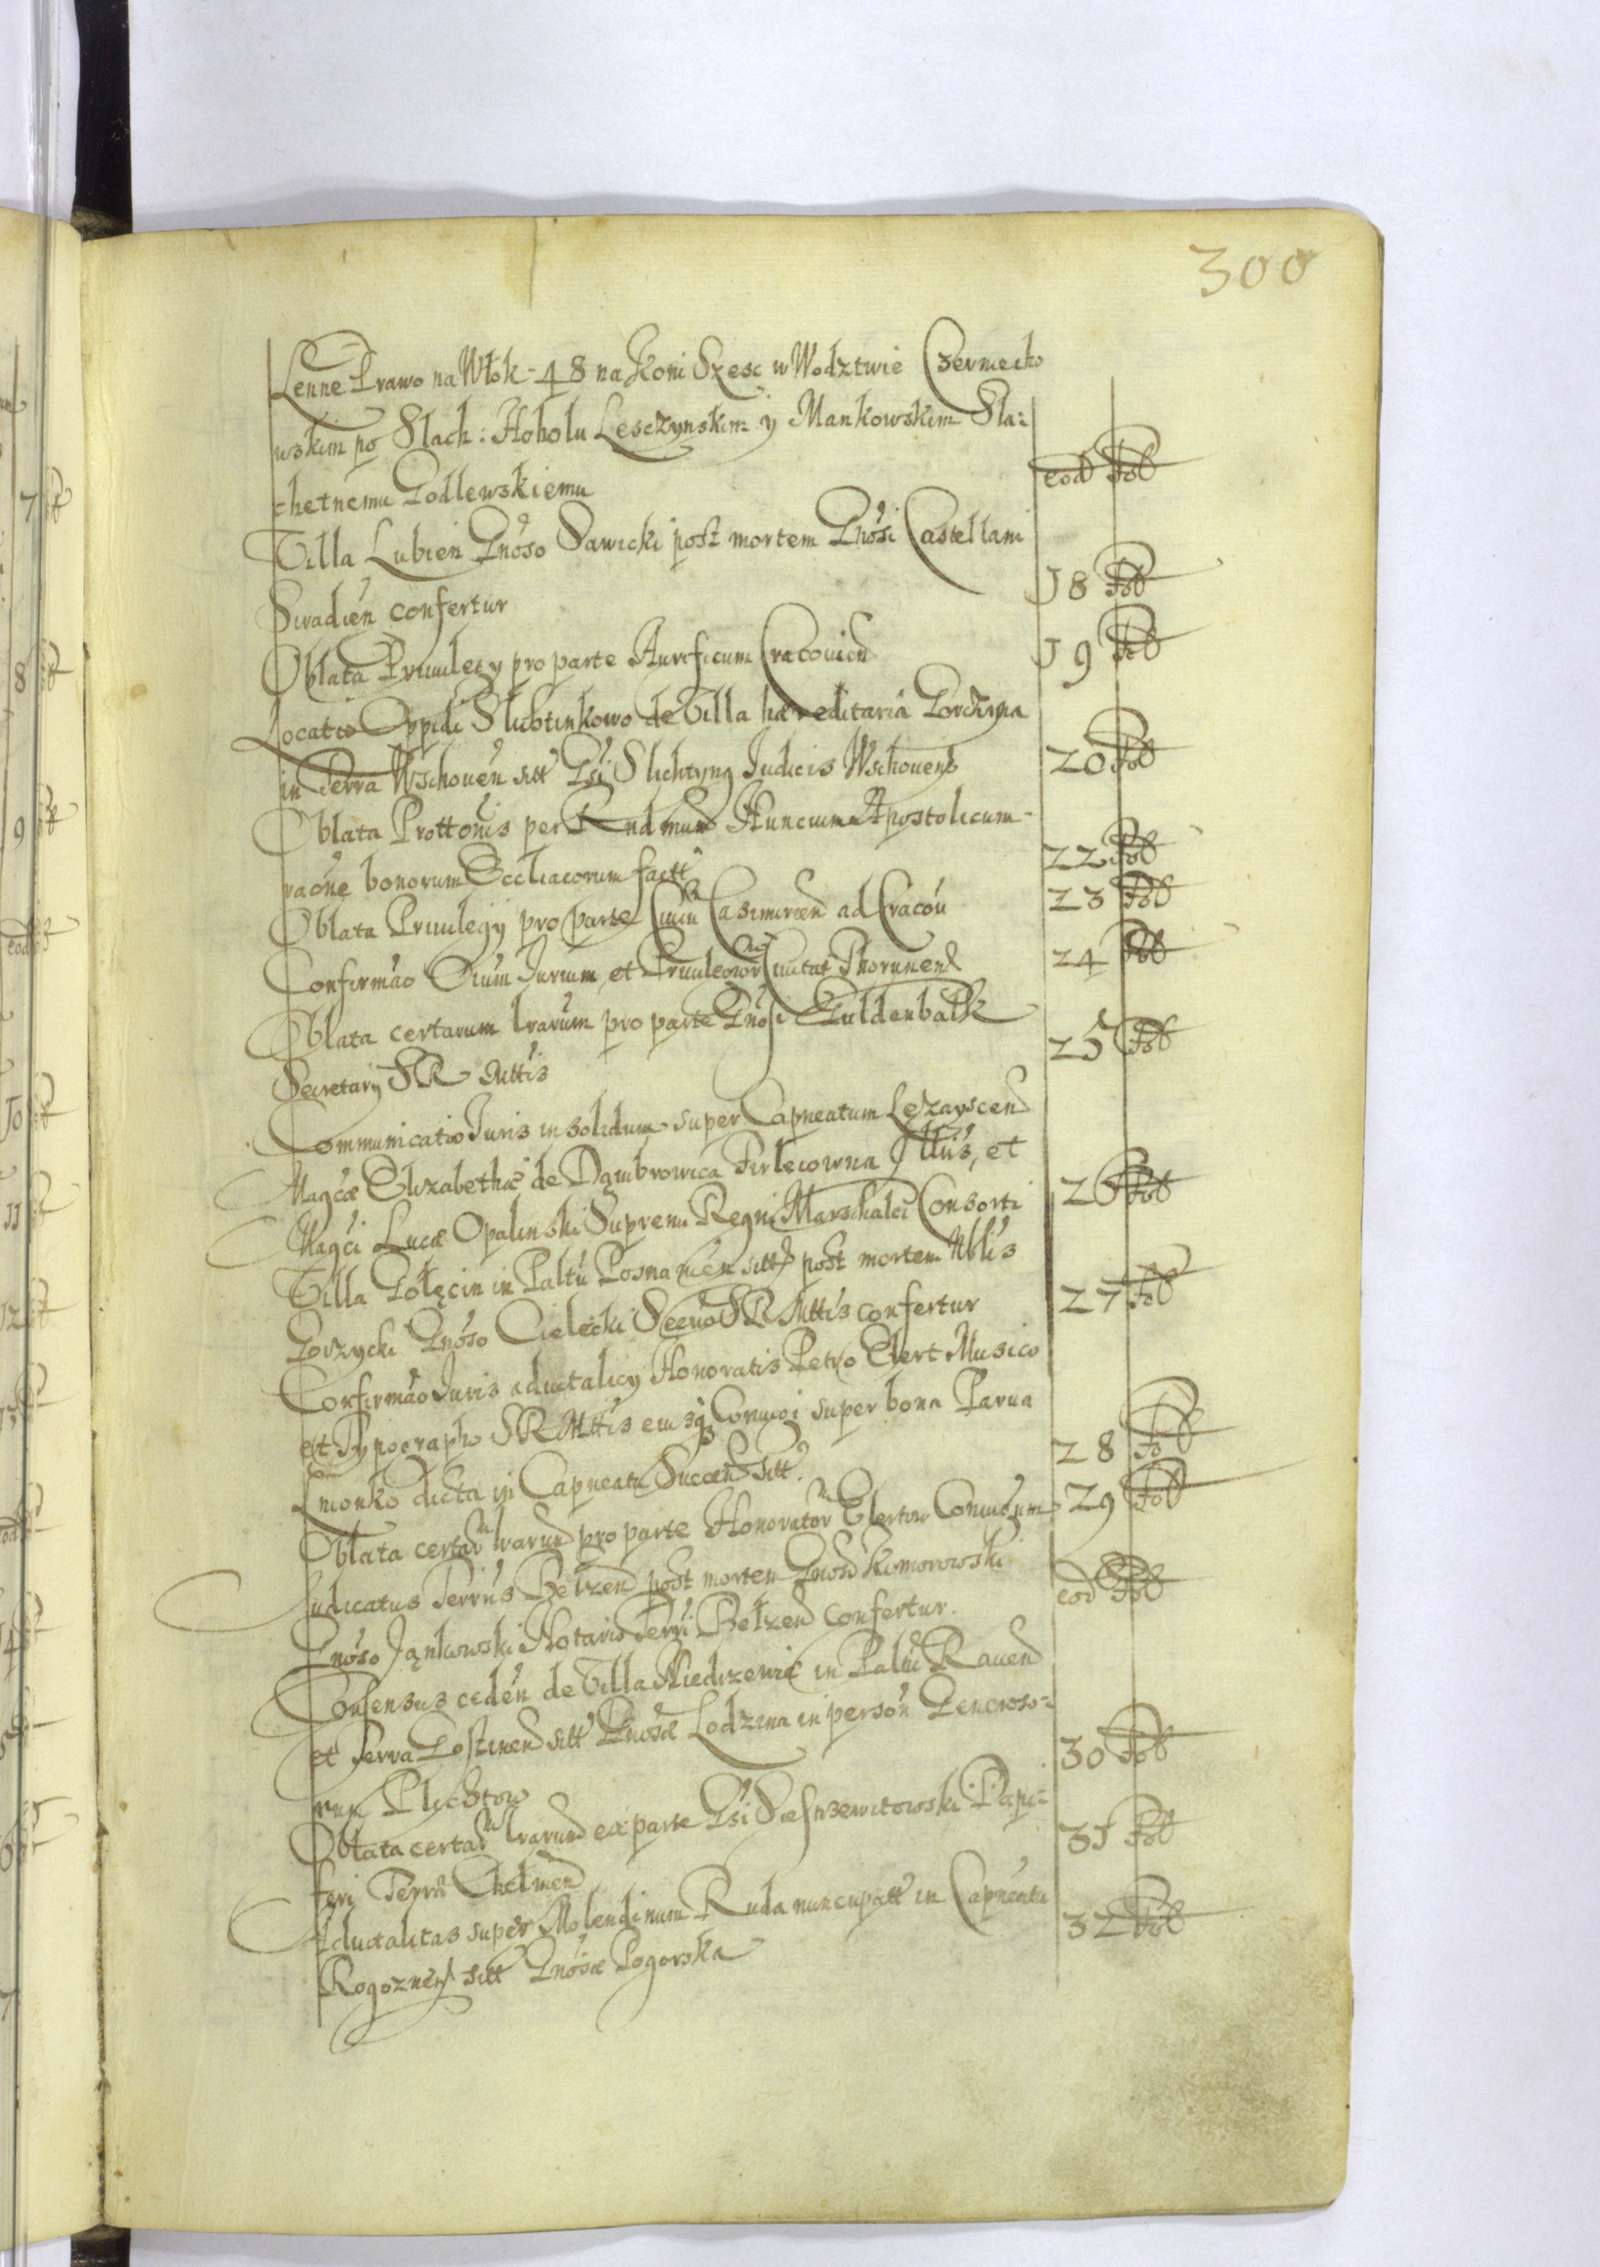 300
Lenne Prawo na Włok - 48 na Koni Szesc w Wodztwie Czerniecho
wskim po Slach: Hoholu Lesczynskim y Mankowskim Sla:
chetnemu Godlewskiemu eod Fol
Villa Lubien Gnoso Sawicki post mortem Gnosi Castellani
Siradien confertur 18 Fol
Oblata Priuilegy pro parte Aurificum Cracouien 19 Fol
Locatio Oppidi Slichtinkowo de Villa hæreditaria Gorczyna
in Terra Wschouen sitt Gsi Slichtyng Iudicis Wschouens 20 Fol
Oblata Prottonis per Rndmum Nuncium Apostolicum
raone bonorum Eccliacorum factt 22 Fol
Oblata Priuilegij pro parte Ciuiu Casimirien ad Cracou 23 Fol
Confirmao Oium Iurium et Priuileior Ciuitat Thorunen 24 Fol
Oblata certarum lrarum pro parte Gnosi Guldenbalk
Secretarij SR Mttis 25 Fol
Communicatio Iuris in solidum super Capneatum Lezayscen
Magcæ Elizabethæ de Dąmbrowica Firleiowna Illius, et
Magci Lucæ Opalinski Supremi Regni Marschalci Consorti 26 Fol
Villa Gołęcin in Paltu Posnanien sitt post mortem Nblis
Gorzycki Gnoso Cielecki Secrio SR Mttis confertur 27 Fol
Confirmao Iuris aduitalicy Honoratis Petro Elert Musico
et Typographo SR Mttis eiusq Coniugi super bona Parua
dicta in Capneatu sitt. 28 Fol
Oblata certar lrarum pro parte Honorator Elertow Coniugum 29 Fol
Iudicatus Terrus Bełzen post mortem Gnosi Komorowski
Gnoso Jąnkowski Notario Terri Bełzen confertur. eod Fol
Consensus ceden de Villa Niedrzewie in Paltu Rauen
et Terra Gostinen sitt Gnosæ Lodzina in person Generoso:
rum Plichtow 30 Fol
Oblata certar lrarum ex parte Gsi Siestrzewitowski Papi:
feri Terræ Chelmen 31 Fol
Aduitalitas super Molendinum Ruda nuncupatt in Capneatu
Rogoznen sitt Gnosæ Pogorska 32 Fol